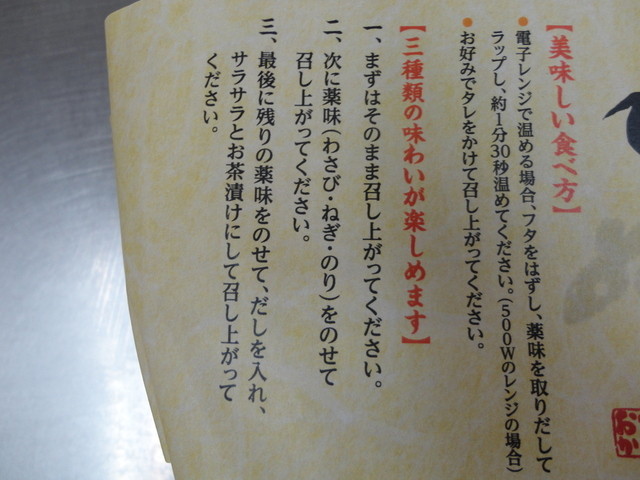 【美味しい食べ方】
●電子レンジで温める場合、フタをはずし、薬味を取りだして
ラップし、約1分30秒温めてください。(500Wのレンジの場合)
●お好みでタレをかけて召し上がってください。
【三種類の味わいが楽しめます】
一、まずはそのまま召し上がってください。
二、次に薬味(わさび・ねぎ・のり)をのせて
召し上がってください。
三、最後に残りの薬味をのせて、だしを入れ、
サラサラとお茶漬けにして召し上がって
ください。
おか